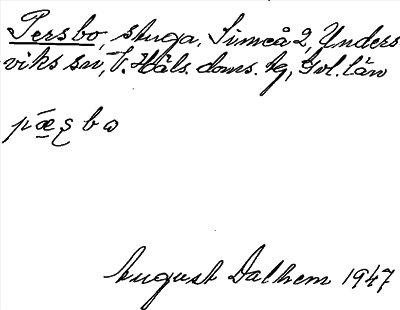 Persbo, stuga, Simeå 2, Ynders
viks sn, V. Häls. doms. tg, Gvl. län
pæʂbo
August Dalhem 1947